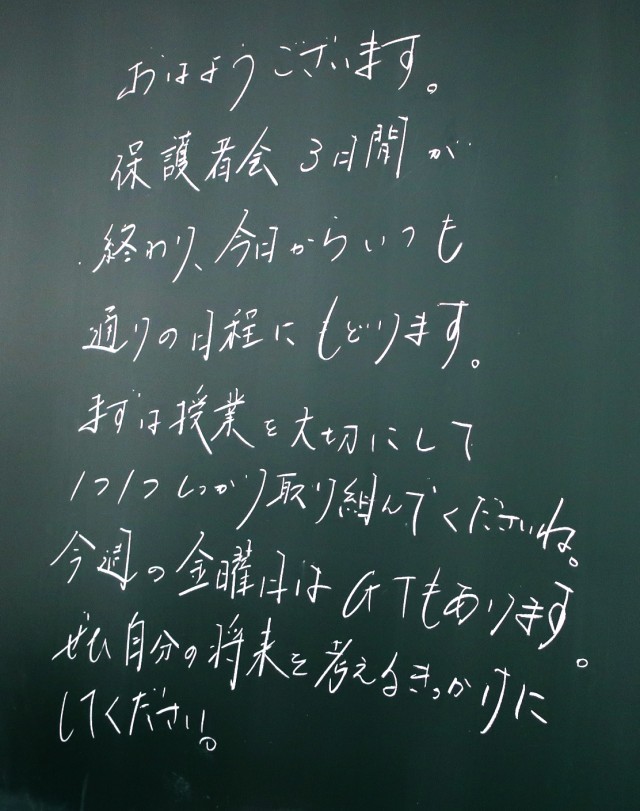 おはようございます。
保護者会3日間が
終わり、今日からいつも
通りの日程にもどります。
まずは授業を大切にして
1つ1つしっかり取り組んでくださいね。
今週の金曜日はGTもあります。
ぜひ自分の将来を考えるきっかけに
してください。